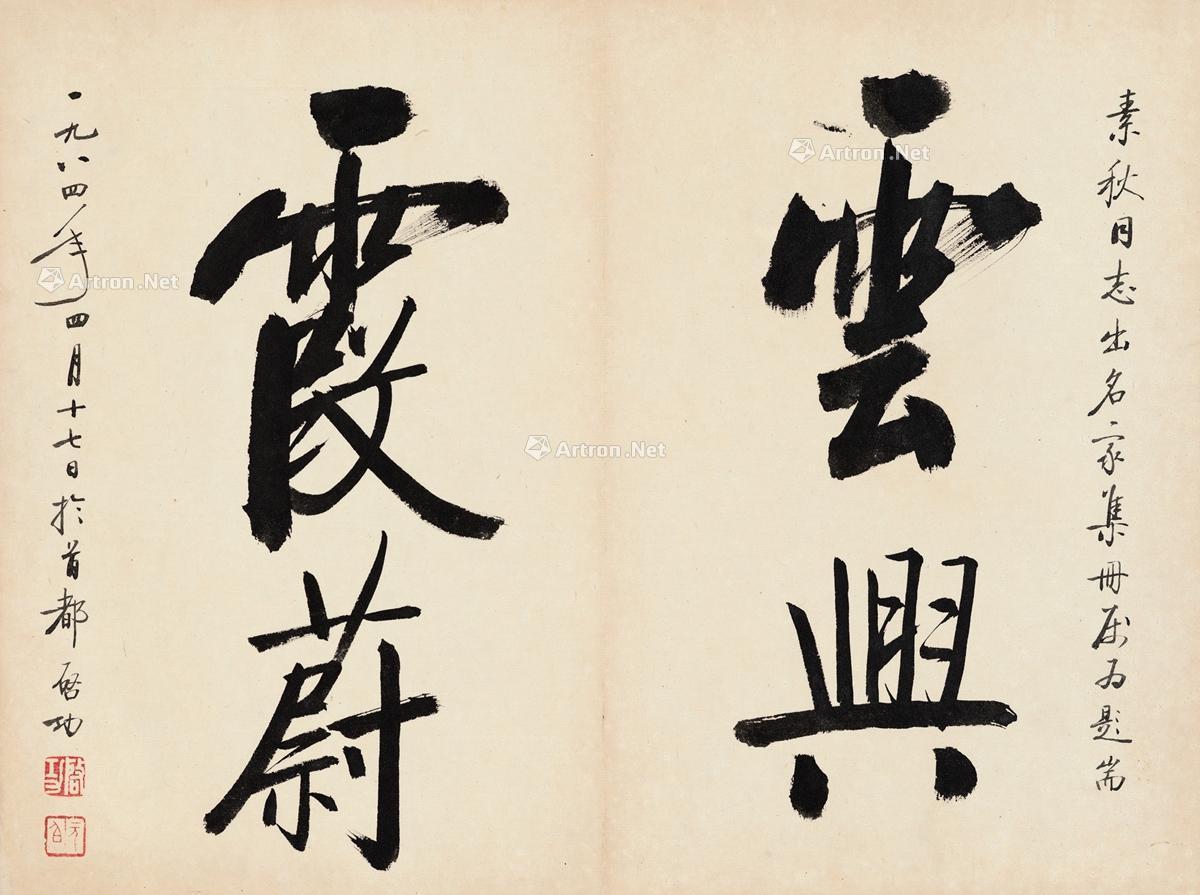 素秋同志出名家集冊屬为題耑
雲興
霞蔚
一九八四年四月十七日於首都 启功
Artron.Net
Artron.Net
Artron.Net